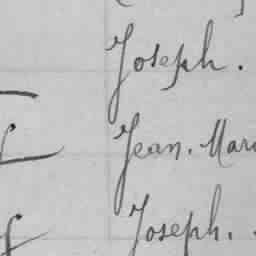 Joseph.
Jean. Mari
Joseph.